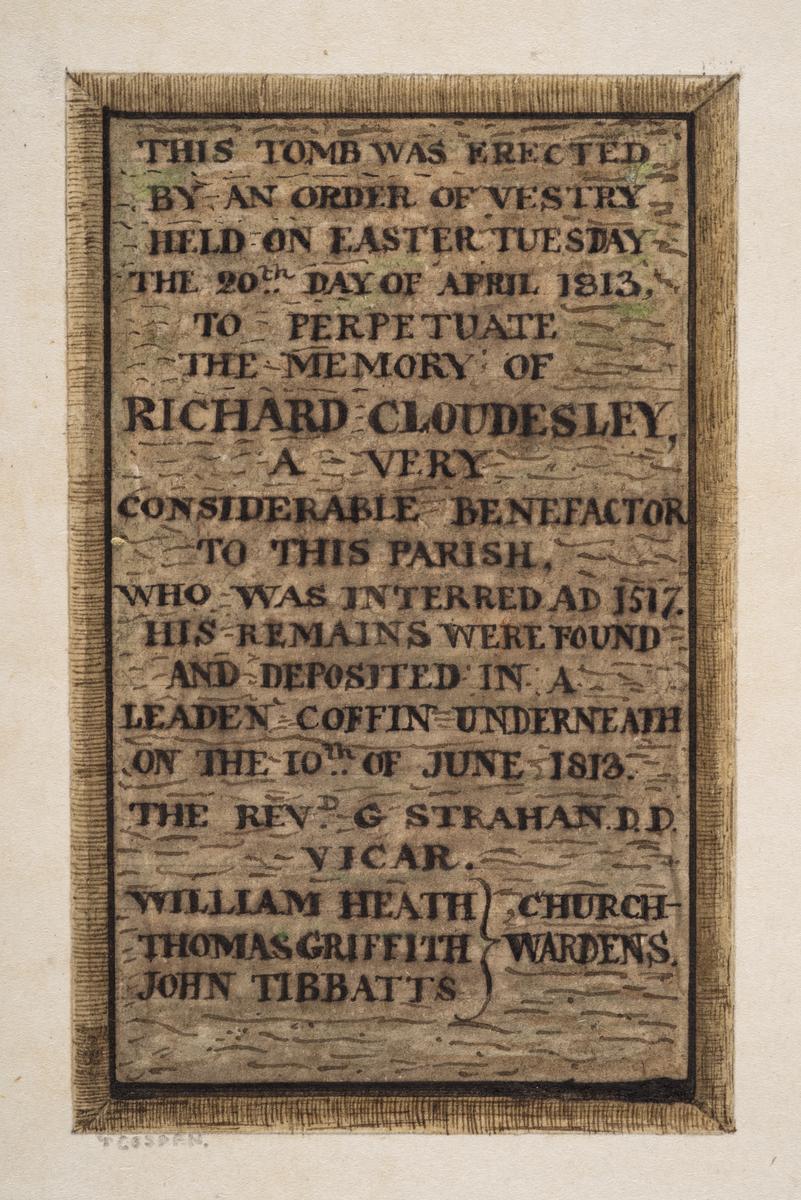 THIS TOMB WAS ERECTED
BY AN ORDER OF VESTRY
HELD ON EASTER TUESDAY
THE 20th. DAY OF APRIL 1813,
TO PERPETUATE
THE MEMORY OF
RICHARD CLOUDESLEY,
A VERY
CONSIDERABLE BENEFACTOR
TO THIS PARISH,
WHO WAS INTERRED AD 1517.
HIS REMAINS WERE FOUND
AND DEPOSITED IN A
LEADEN COFFIN UNDERNEATH
ON THE 10th. OF JUNE 1813.
THE REVD. G STRAHAN. D.D.
VICAR.
WILLIAM HEATH } CHURCH-
THOMAS GRIFFITH } WARDENS.
JOHN TIBBATTS